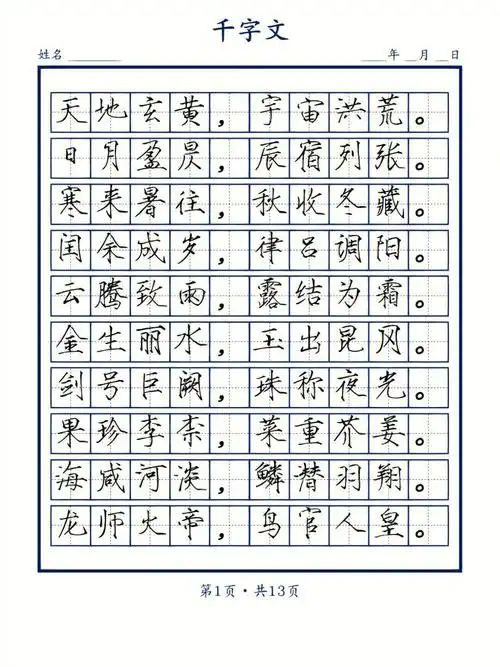 千字文
姓名________ ___年__月__日
天地玄黄，宇宙洪荒。
日月盈昃，辰宿列张。
寒来暑往，秋收冬藏。
闰余成岁，律吕调阳。
云腾致雨，露结为霜。
金生丽水，玉出昆冈。
剑号巨阙，珠称夜光。
果珍李柰，菜重芥姜。
海咸河淡，鳞潜羽翔。
龙师火帝，鸟官人皇。
第1页·共13页